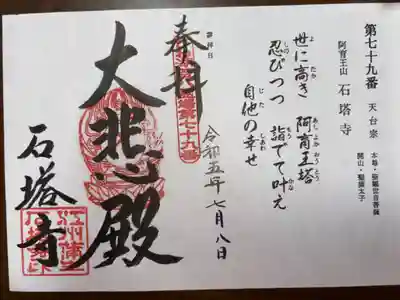 第七十九番 天台宗 本尊・聖観世音菩薩
阿育王山 石塔寺 開山・聖徳太子
世に高き 阿育王塔
忍びつつ 詣でて叶え
自他の幸せ
参拝日
令和五年七月八日
奉拝
大悲殿
石塔寺